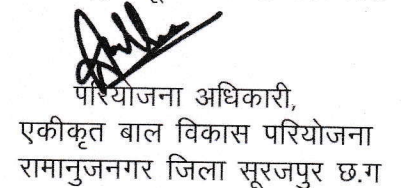 परियोजना अधिकारी,
एकीकृत बाल विकास परियोजना
रामानुजनगर जिला सूरजपुर छ.ग